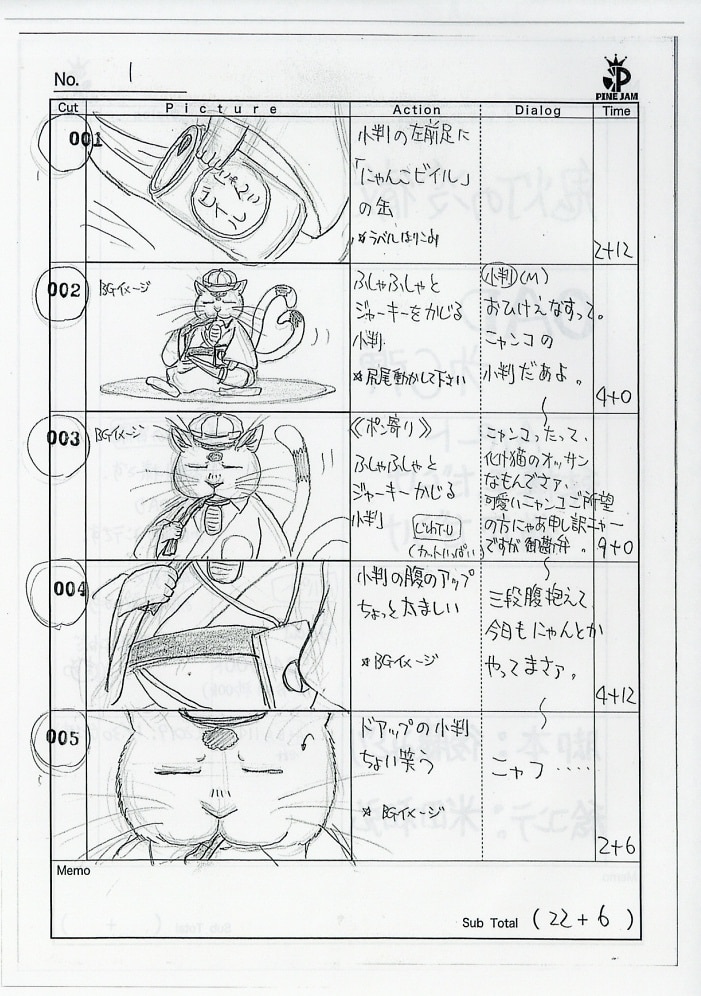 No. 1
PINE JAM
Cut Picture Action Dialog Time
001
にゃんこ
ビイル
小判の左前足に
「にゃんこビイル」
の缶
*ラベルはりこみ
2+12
002
BGイメージ
ふしゃふしゃと
ジャーキーをかじる
小判
*尻尾動かして下さい
小判(M)
おひけぇなすって。
ニャンコの
小判だぁよ。
4+0
003
BGイメージ
《ポン寄り》
ふしゃふしゃと
ジャーキーかじる
小判
じわT.U
(カットいっぱい)
ニャンコったって、
化け猫のオッサン
なもんでさァ、
可愛いニャンコご所望
の方にゃあ申し訳ニャー
ですが御勘弁。
9+0
004
小判の腹のアップ
ちょっと太ましい
*BGイメージ
三段腹抱えて
今日もにゃんとか
やってまさァ。
4+12
005
ドアップの小判
ちょい笑う
*BGイメージ
ニャフ‥‥
2+6
Memo
Sub Total (22+6)